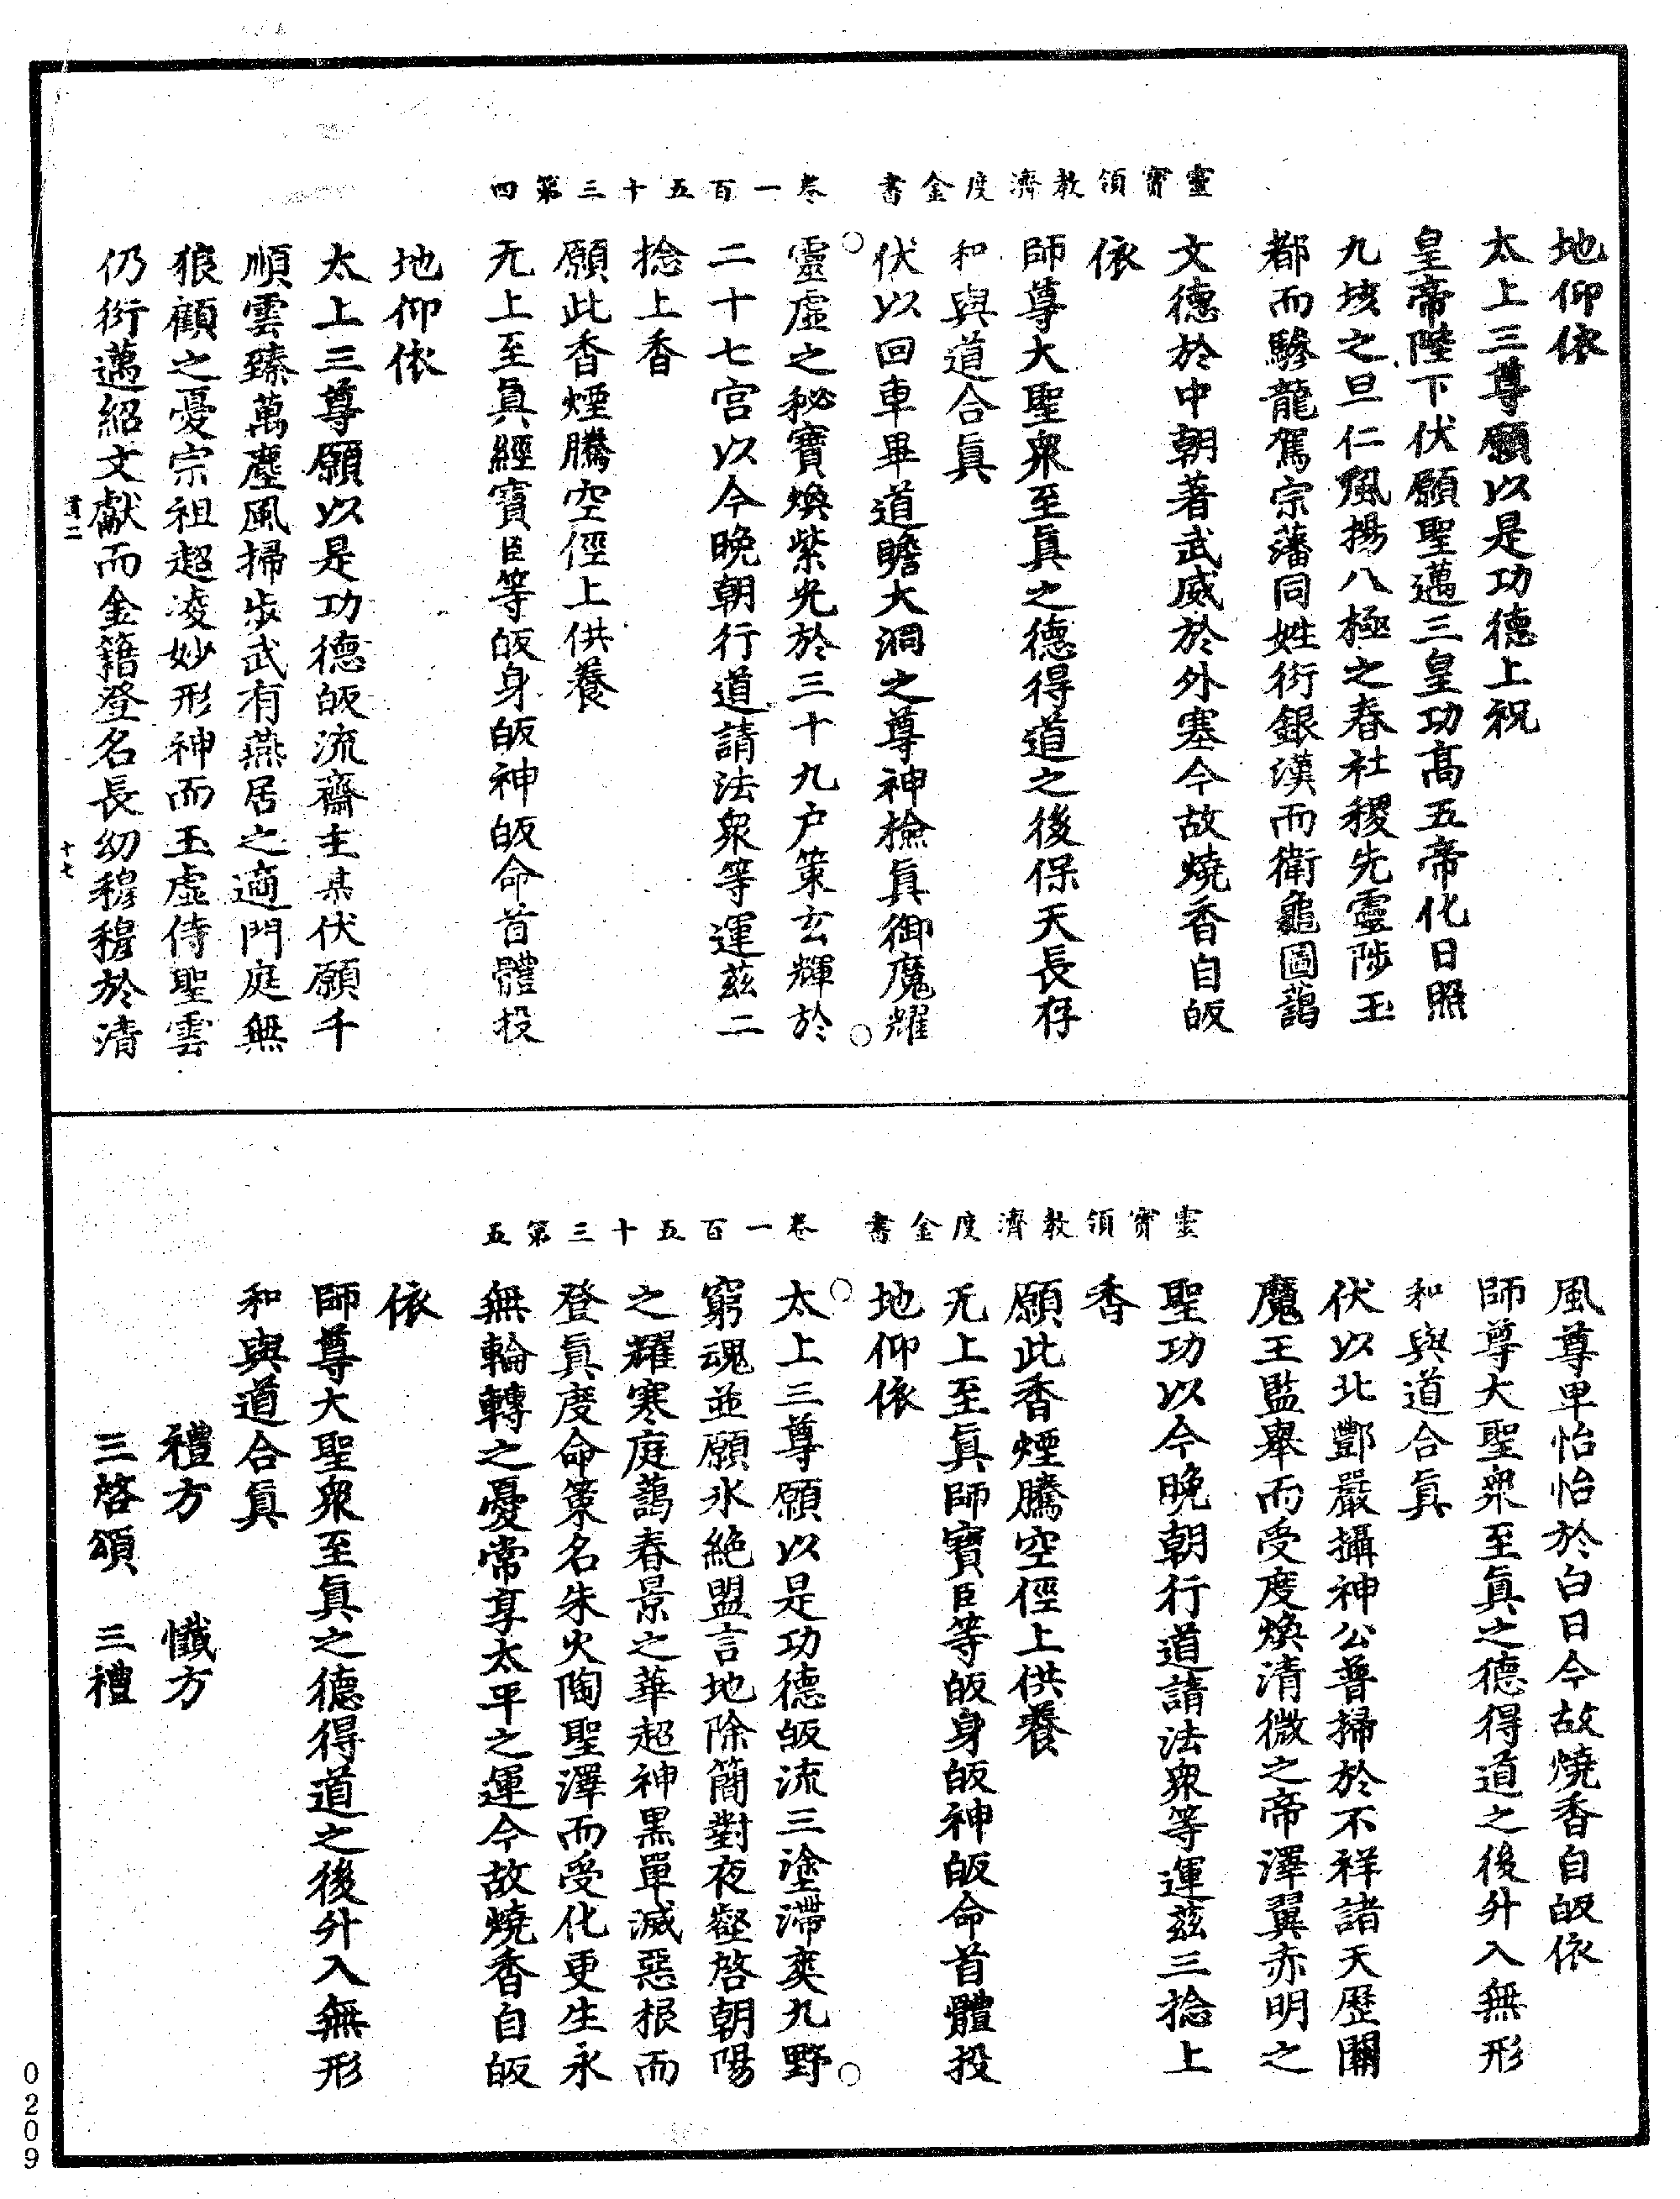 靈寶領教濟度金書　卷一百五十三第四
地仰依
太上三尊願以是功德上祝
皇帝陛下伏願聖邁三皇功高五帝化日照
九垓之旦仁風揚八極之春社稷先靈陟玉
都而驂龍駕宗藩同姓衍銀漢而衛龜圖藹
文德於中朝著武威於外塞今故燒香自皈
依
師尊大聖衆至眞之德得道之後保天長存
和與道合眞
伏以回車畢道瞻大洞之尊神檢眞御魔耀
靈虛之秘寶煥紫光於三十九户策玄輝於
二十七宫以今晚朝行道請法衆等運茲二
捻上香
願此香煙騰空徑上供養
无上至眞經寶臣等皈身皈神皈命首體投
地仰依
太上三尊願以是功德皈流齋主某伏願千
順雲臻萬塵風掃步武有燕居之適門庭無
狼顧之憂宗祖超凌妙形神而玉虛侍聖雲
仍衍邁紹文獻而金籍登名長幼穆穆於清
十七
靈寶領教濟度金書　卷一百五十三第五
風尊卑怡怡於白日今故燒香自皈依
師尊大聖衆至眞之德得道之後升入無形
和與道合眞
伏以北酆嚴攝神公普掃於不祥諸天歷關
魔王監舉而受度煥清微之帝澤翼赤明之
聖功以今晚朝行道請法衆等運茲三捻上
香
願此香煙騰空徑上供養
无上至眞師寶臣等皈身皈神皈命首體投
地仰依
太上三尊願以是功德皈流三塗滯爽九野
窮魂並願氷絶盟言地除簡對夜壑啓朝陽
之耀寒庭藹春景之華超神黑單滅惡根而
登眞度命策名朱火陶聖澤而受化更生永
無輪轉之憂常享太平之運今故燒香自皈
依
師尊大聖衆至眞之德得道之後升入無形
和與道合眞
禮方　懺方
三啓頌　三禮
0209